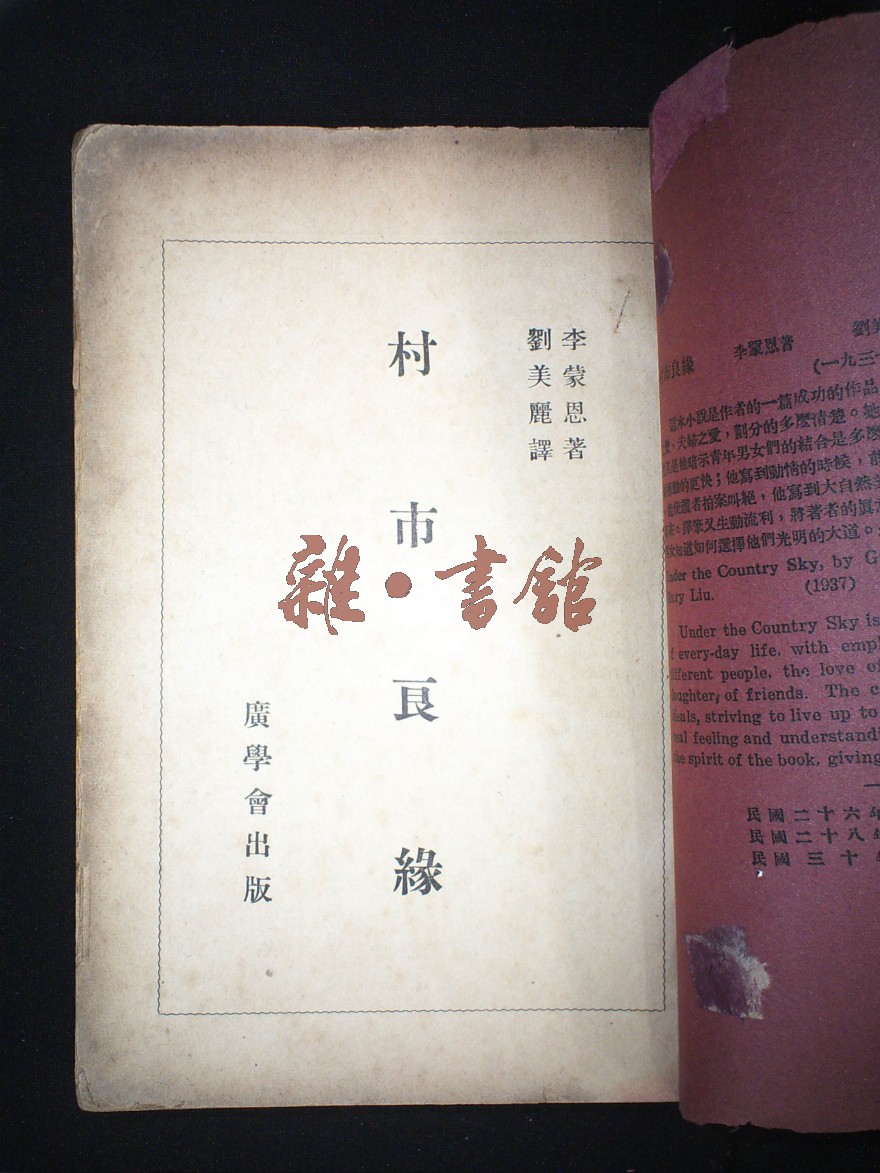 李蒙恩著
劉美麗譯
村市良緣
廣學會出版
雜·書館
劉美
市良緣 李蒙恩著
(一九三
這本小說是作者的一篇成功的作品
夫婦之愛，劃分的多麼清楚。她
是他暗示青年男女們的結合是多麼
的更快；他寫到動情的時候，
者拍案叫絕，他寫到大自然美
譯筆又生動流利，將著者的眞
知道如何選擇他們光明的大道。
nder the Country Sky, by G
ary Liu. (1937)
Under the Country Sky is
f every-day life, with emp
ifferent people, the love of
aughter, of friends. The c
eals, striving to live up to
eal feeling and understandi
he spirit of the book, giving
民國二十六年
民國二十八年
民國三十年